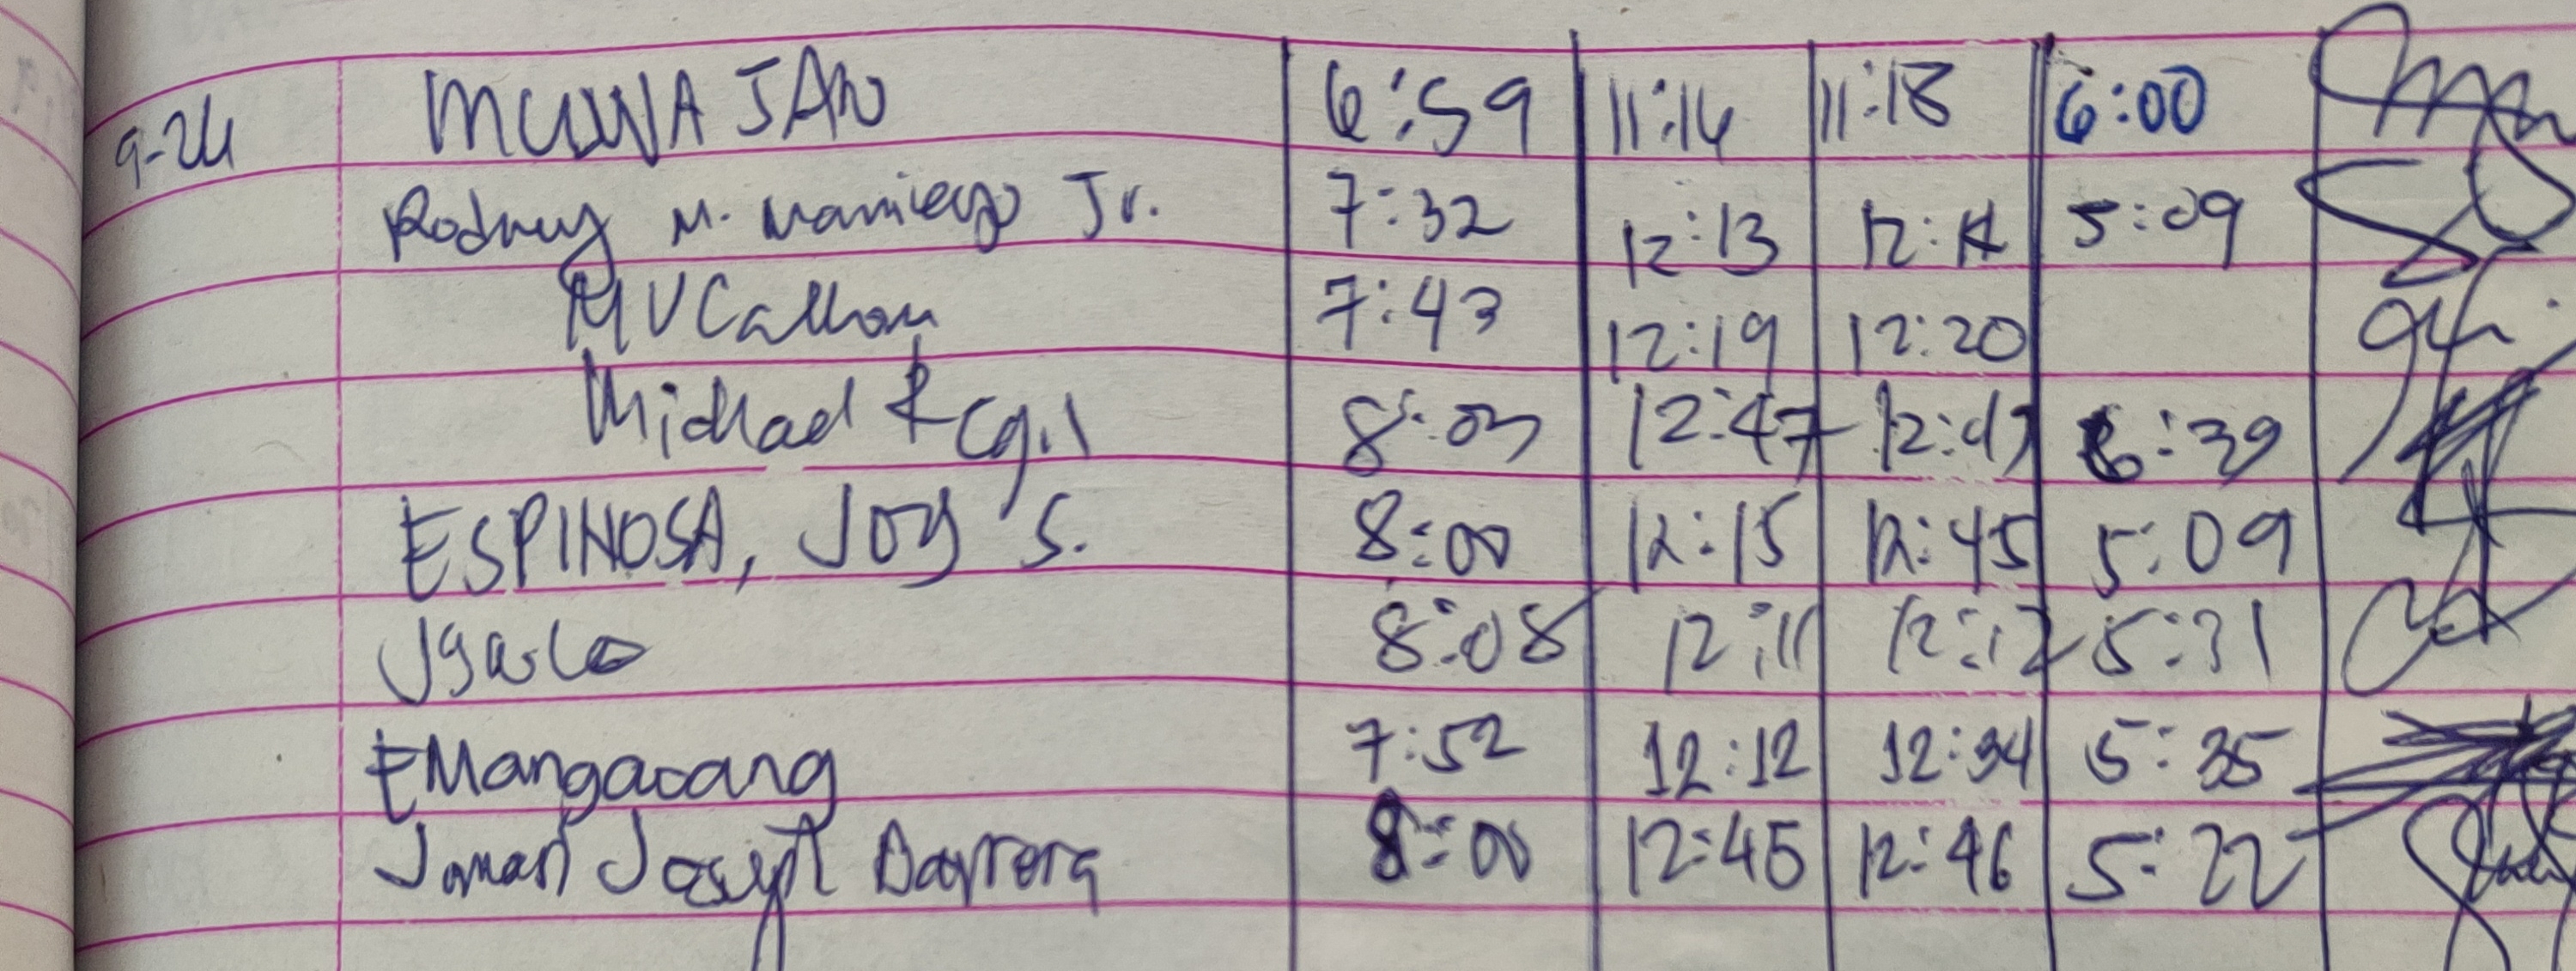 9-24 MULWA JAN 6:59 11:16 11:18 6:00
Rodney M. Maniego Jr. 7:32 12:13 12:14 5:09
MV 7:43 12:19 12:20
Michael R 8:03 12:47 12:47 6:39
ESPINOSA, JOY S. 8:00 12:15 12:45 5:09
8:08 12:11 12:12 5:31
EMangaoang 7:52 12:12 12:34 5:35
Joseph 8:00 12:45 12:46 5:22